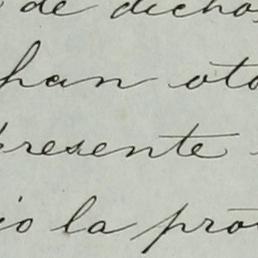 de dicho
han oto
presente
io la pro